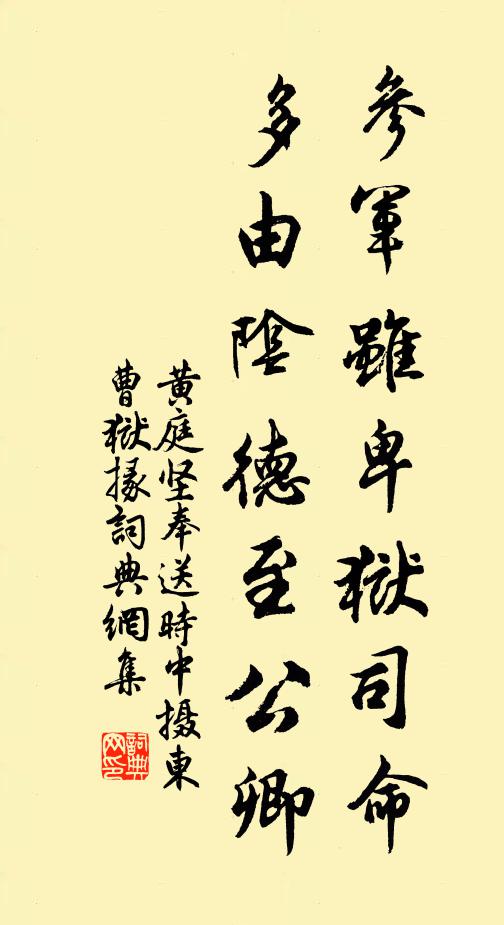 參軍雖卑獄司命
多由陰德至公卿
黄庭坚奉送時中摄東
曹獄掾詞典網集
詞典网印